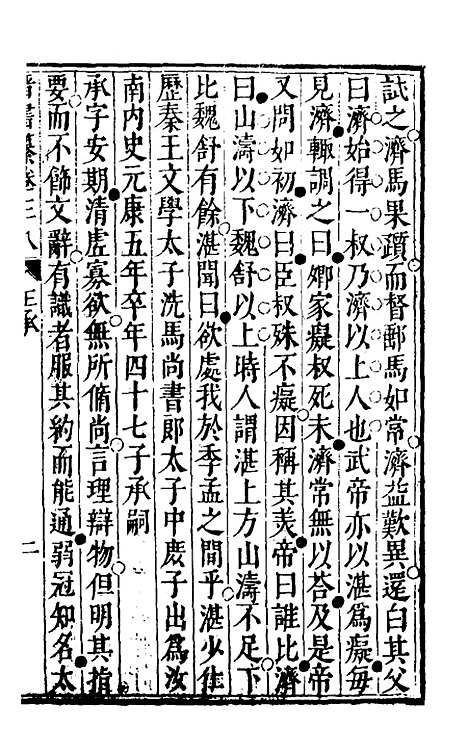 試之濟馬果躓而督郵馬如常濟益歎異還白其父
曰濟始得一叔乃濟以上人也武帝亦以湛爲癡每
見濟輒調之曰卿家癡叔死未濟常無以荅及是帝
又問如初濟曰臣叔殊不癡因稱其美帝曰誰比濟
曰山濤以下魏舒以上時人謂湛上方山濤不足下
比魏舒有餘湛聞曰欲處我於季孟之間乎湛少仕
歷秦王文學太子洗馬尚書郎太子中庶子出爲汝
南內史元康五年卒年四十七子承嗣
承字安期清虛寡欲無所脩尚言理辯物但明其指
要而不飾文辭有識者服其約而能通弱冠知名太
晉書纂卷三八 王承 二